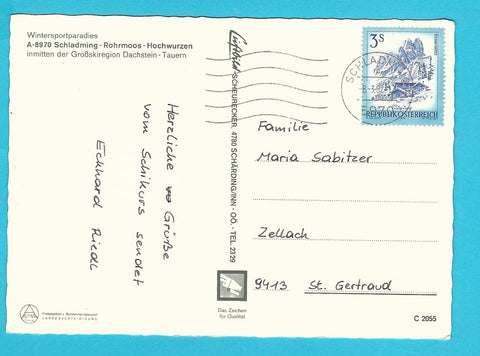 Wintersportparadies
A-8970 Schladming - Rohrmoos - Hochwurzen
inmitten der Großskiregion Dachstein - Tauern
Herzliche Grüße
vom Schikurs sendet
Eckhard Riedl
Luftbild SCHEURECKER, 4780 SCHÄRDING/INN - OÖ. - TEL. 2329
3S
REPUBLIK ÖSTERREICH
SCHLADMING
8970
Familie
Maria Sabitzer
Zellach
9413 St. Gertraud
Das Zeichen
für Qualität
C 2055